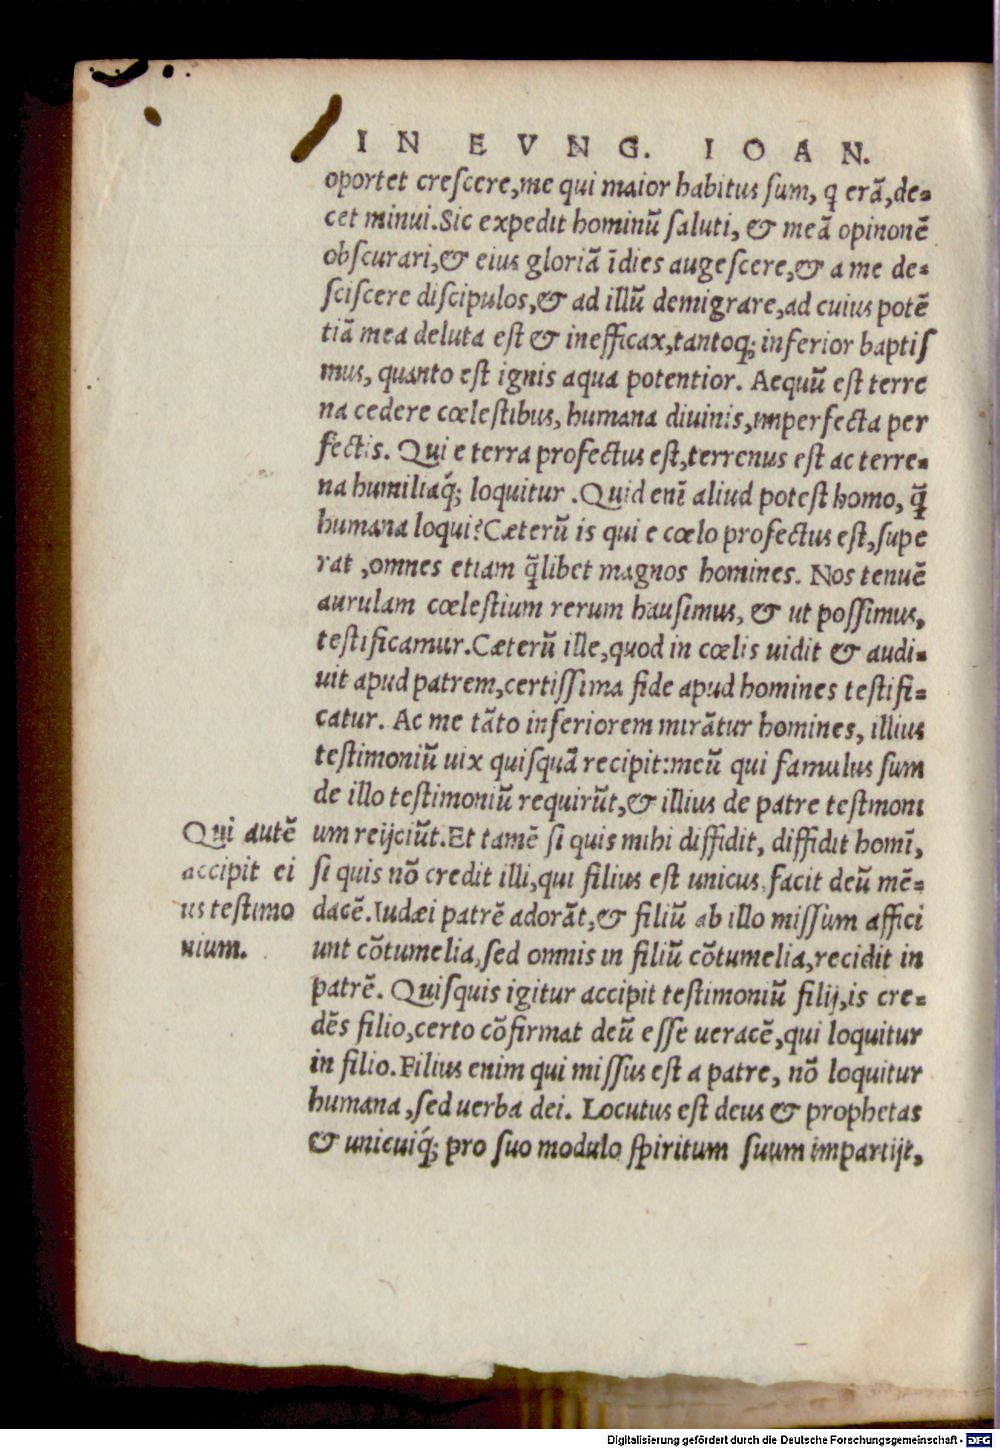 IN EVNG. IOAN.
oportet crescere, me qui maior habitus sum, q̃ erã, de-
cet minui. Sic expedit hominũ saluti, & meã opinonẽ
obscurari, & eius gloriã ĩdies augescere, & a me de-
sciscere discipulos, & ad illũ demigrare, ad cuius potẽ
tiã mea deluta est & inefficax, tantoq; inferior baptis
mus, quanto est ignis aqua potentior. Aequũ est terre
na cedere cœlestibus, humana diuinis, imperfecta per
fectis. Qui e terra profectus est, terrenus est ac terre-
na humiliaq́; loquitur. Quid enĩ aliud potest homo, q̃
humana loqui? Cæterũ is qui e cœlo profectus est, supe
rat, omnes etiam q̃libet magnos homines. Nos tenuẽ
aurulam cœlestium rerum hausimus, & ut possimus,
testificamur. Cæterũ ille, quod in cœlis uidit & audi-
uit apud patrem, certissima fide apud homines testifi-
catur. Ac me tãto inferiorem mirãtur homines, illius
testimoniũ uix quisquã recipit: meũ qui famulus sum
de illo testimoniũ requirũt, & illius de patre testimoni
um reijciũt. Et tamẽ si quis mihi diffidit, diffidit homĩ,
si quis nõ credit illi, qui filius est unicus, facit deũ mẽ-
dacẽ. Iudæi patrẽ adorãt, & filiũ ab illo missum affici
unt cõtumelia, sed omnis in filiũ cõtumelia, recidit in
patrẽ. Quisquis igitur accipit testimoniũ filij, is cre-
dẽs filio, certo cõfirmat deũ esse ueracẽ, qui loquitur
in filio. Filius enim qui missus est a patre, nõ loquitur
humana, sed uerba dei. Locutus est deus & prophetas
& unicuiq́; pro suo modulo spiritum suum impartijt,
Qui autẽ
accipit ei
us testimo
nium.
Digitalisierung gefördert durch die Deutsche Forschungsgemeinschaft - DFG